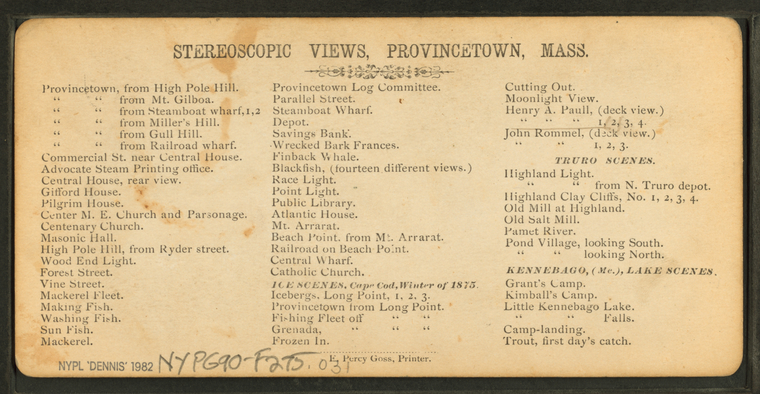 STEREOSCOPIC VIEWS, PROVINCETOWN, MASS.
Provincetown, from High Pole Hill.
“ “ from Mt. Gilboa.
“ “ from Steamboat wharf, 1, 2
“ “ from Miller's Hill.
“ “ from Gull Hill.
“ “ from Railroad wharf.
Commercial St. near Central House.
Advocate Steam Printing office.
Central House, rear view.
Gifford House.
Pilgrim House.
Center M. E. Church and Parsonage.
Centenary Church.
Masonic Hall.
High Pole Hill, from Ryder street.
Wood End Light.
Forest Street.
Vine Street.
Mackerel Fleet.
Making Fish.
Washing Fish.
Sun Fish.
Mackerel.
Provincetown Log Committee.
Parallel Street.
Steamboat Wharf.
Depot.
Savings Bank.
Wrecked Bark Frances.
Finback Whale.
Blackfish, (fourteen different views.)
Race Light.
Point Light.
Public Library.
Atlantic House.
Mt. Arrarat.
Beach Point, from Mt. Arrarat.
Railroad on Beach Point.
Central Wharf.
Catholic Church.
ICE SCENES, Cape Cod, Winter of 1875.
Icebergs, Long Point, 1, 2, 3.
Provincetown from Long Point.
Fishing Fleet off “ “
Grenada, “ “ “
Frozen In.
E. Percy Goss, Printer.
Cutting Out.
Moonlight View.
Henry A. Paull, (deck view.)
“ “ “ 1, 2, 3, 4.
John Rommel, (deck view.)
“ “ 1, 2, 3.
TRURO SCENES.
Highland Light.
“ “ from N. Truro depot.
Highland Clay Cliffs, No. 1, 2, 3, 4.
Old Mill at Highland.
Old Salt Mill.
Pamet River.
Pond Village, looking South.
“ “ looking North.
KENNEBAGO, (Me.), LAKE SCENES.
Grant's Camp.
Kimball's Camp.
Little Kennebago Lake.
“ “ Falls.
Camp-landing.
Trout, first day's catch.
NYPL 'DENNIS' 1982 NYPG90-F275.031